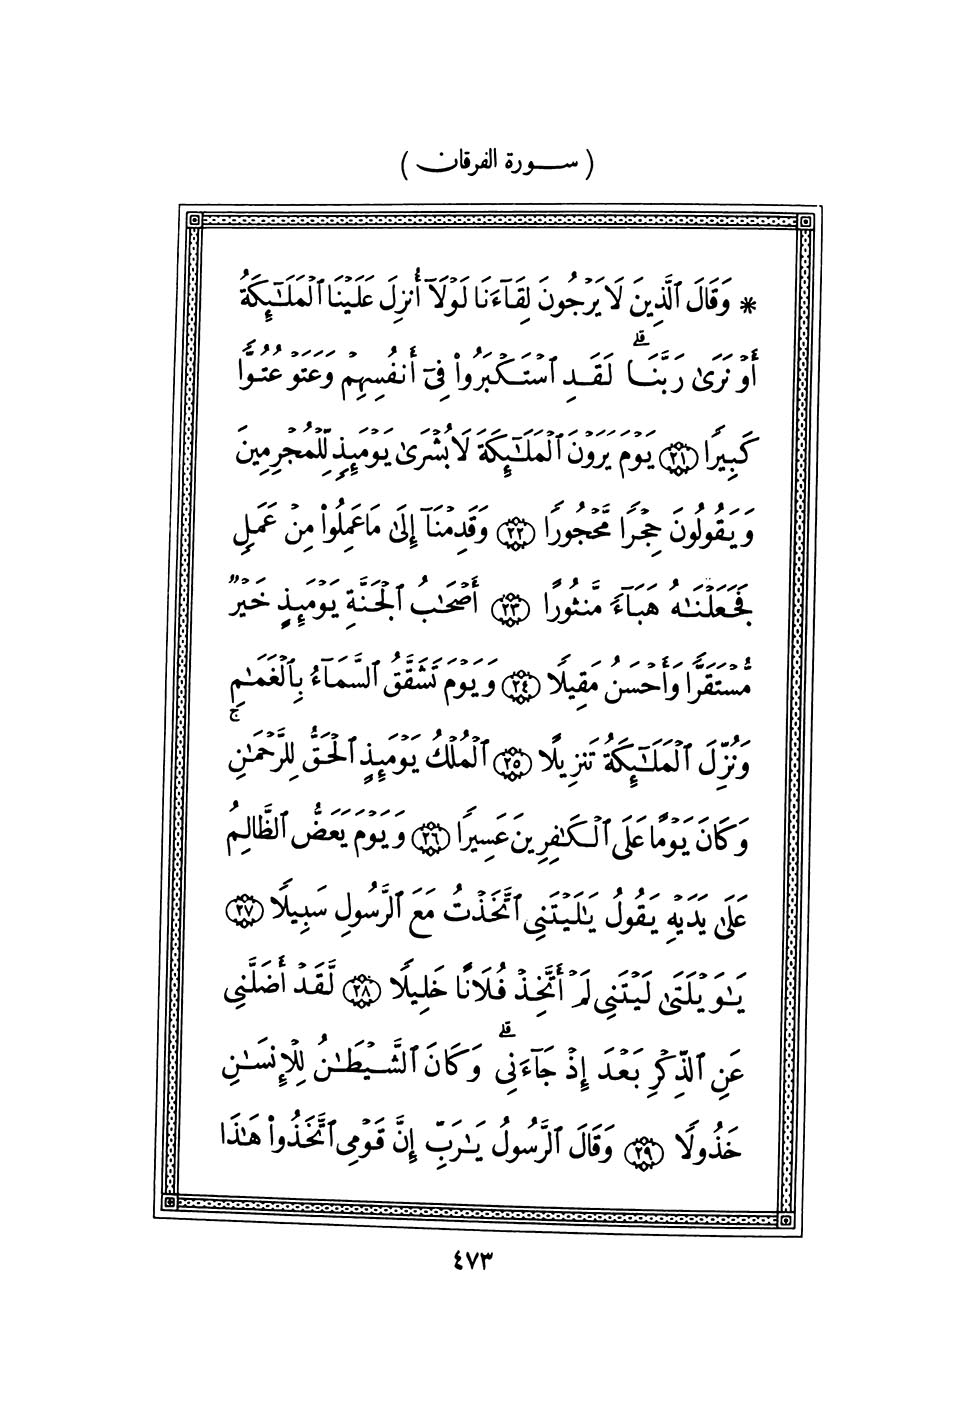 ( سورة الفرقان )
* وَقَالَ ٱلَّذِينَ لَا يَرْجُونَ لِقَآءَنَا لَوْلَآ أُنزِلَ عَلَيْنَا ٱلْمَلَـٰٓئِكَةُ
أَوْ نَرَىٰ رَبَّنَا ۗ لَقَدِ ٱسْتَكْبَرُوا۟ فِىٓ أَنفُسِهِمْ وَعَتَوْ عُتُوًّا
كَبِيرًا ﴿٢١﴾ يَوْمَ يَرَوْنَ ٱلْمَلَـٰٓئِكَةَ لَا بُشْرَىٰ يَوْمَئِذٍ لِّلْمُجْرِمِينَ
وَيَقُولُونَ حِجْرًا مَّحْجُورًا ﴿٢٢﴾ وَقَدِمْنَآ إِلَىٰ مَا عَمِلُوا۟ مِنْ عَمَلٍ
فَجَعَلْنَـٰهُ هَبَآءً مَّنثُورًا ﴿٢٣﴾ أَصْحَـٰبُ ٱلْجَنَّةِ يَوْمَئِذٍ خَيْرٌ
مُّسْتَقَرًّا وَأَحْسَنُ مَقِيلًا ﴿٢٤﴾ وَيَوْمَ تَشَقَّقُ ٱلسَّمَآءُ بِٱلْغَمَـٰمِ
وَنُزِّلَ ٱلْمَلَـٰٓئِكَةُ تَنزِيلًا ﴿٢٥﴾ ٱلْمُلْكُ يَوْمَئِذٍ ٱلْحَقُّ لِلرَّحْمَـٰنِ ۚ
وَكَانَ يَوْمًا عَلَى ٱلْكَـٰفِرِينَ عَسِيرًا ﴿٢٦﴾ وَيَوْمَ يَعَضُّ ٱلظَّالِمُ
عَلَىٰ يَدَيْهِ يَقُولُ يَـٰلَيْتَنِى ٱتَّخَذْتُ مَعَ ٱلرَّسُولِ سَبِيلًا ﴿٢٧﴾
يَـٰوَيْلَتَىٰ لَيْتَنِى لَمْ أَتَّخِذْ فُلَانًا خَلِيلًا ﴿٢٨﴾ لَّقَدْ أَضَلَّنِى
عَنِ ٱلذِّكْرِ بَعْدَ إِذْ جَآءَنِى ۗ وَكَانَ ٱلشَّيْطَـٰنُ لِلْإِنسَـٰنِ
خَذُولًا ﴿٢٩﴾ وَقَالَ ٱلرَّسُولُ يَـٰرَبِّ إِنَّ قَوْمِى ٱتَّخَذُوا۟ هَـٰذَا
٤٧٣